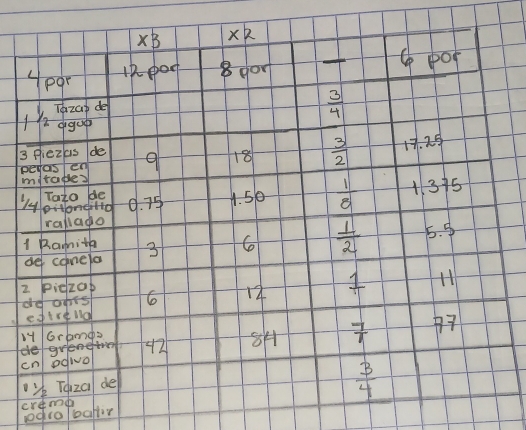 x3 x2
4 por 12 por 8 por — 6 por
1 1/2 Tazas de agua 3/4
3 Piezas de peras en mitades 9 18 3/2 17.25
1/4 Taza de piloncillo rallado 0.75 1.50 1/8 1.375
1 Ramita de canela 3 6 1/2 5.5
2 Piezas de anis estrella 6 12 1/1 11
14 Gramos de grenetina en polvo 42 84 7/1 77
1 1/2 Taza de crema para batir 3/4